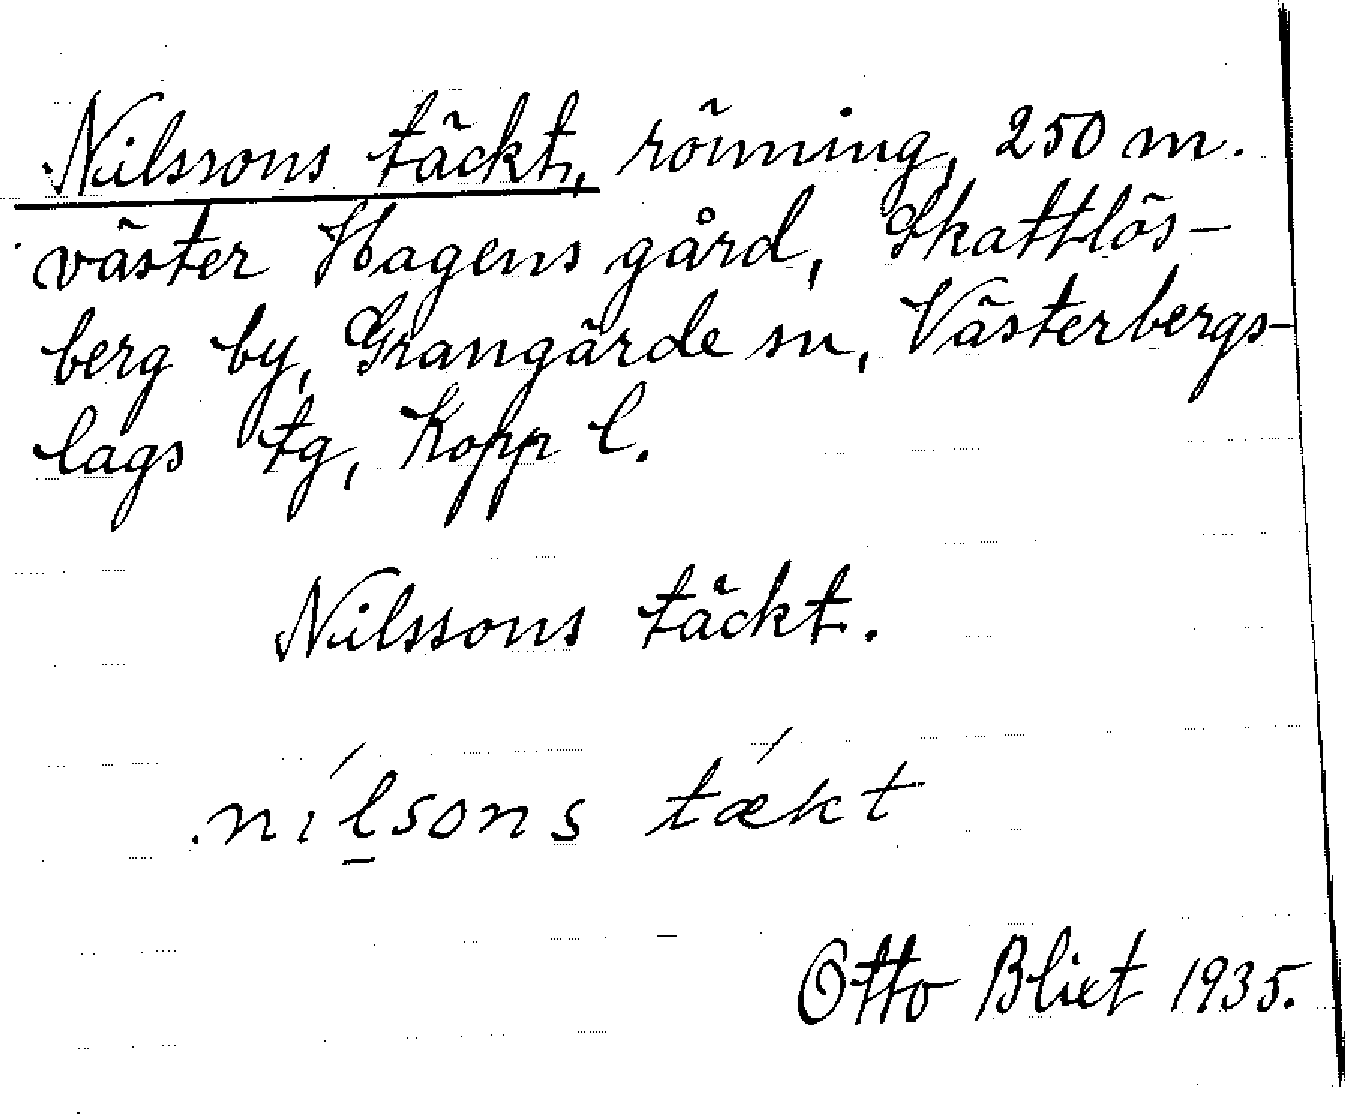 Nilssons täckt, röjning, 250 m.
väster Hagens gård, Skattlös-
berg by, Grangärde sn, Västerbergs-
lags tg, Kopp l.
Nilssons täckt.
nílsons tǽkt
Otto Blixt 1935.